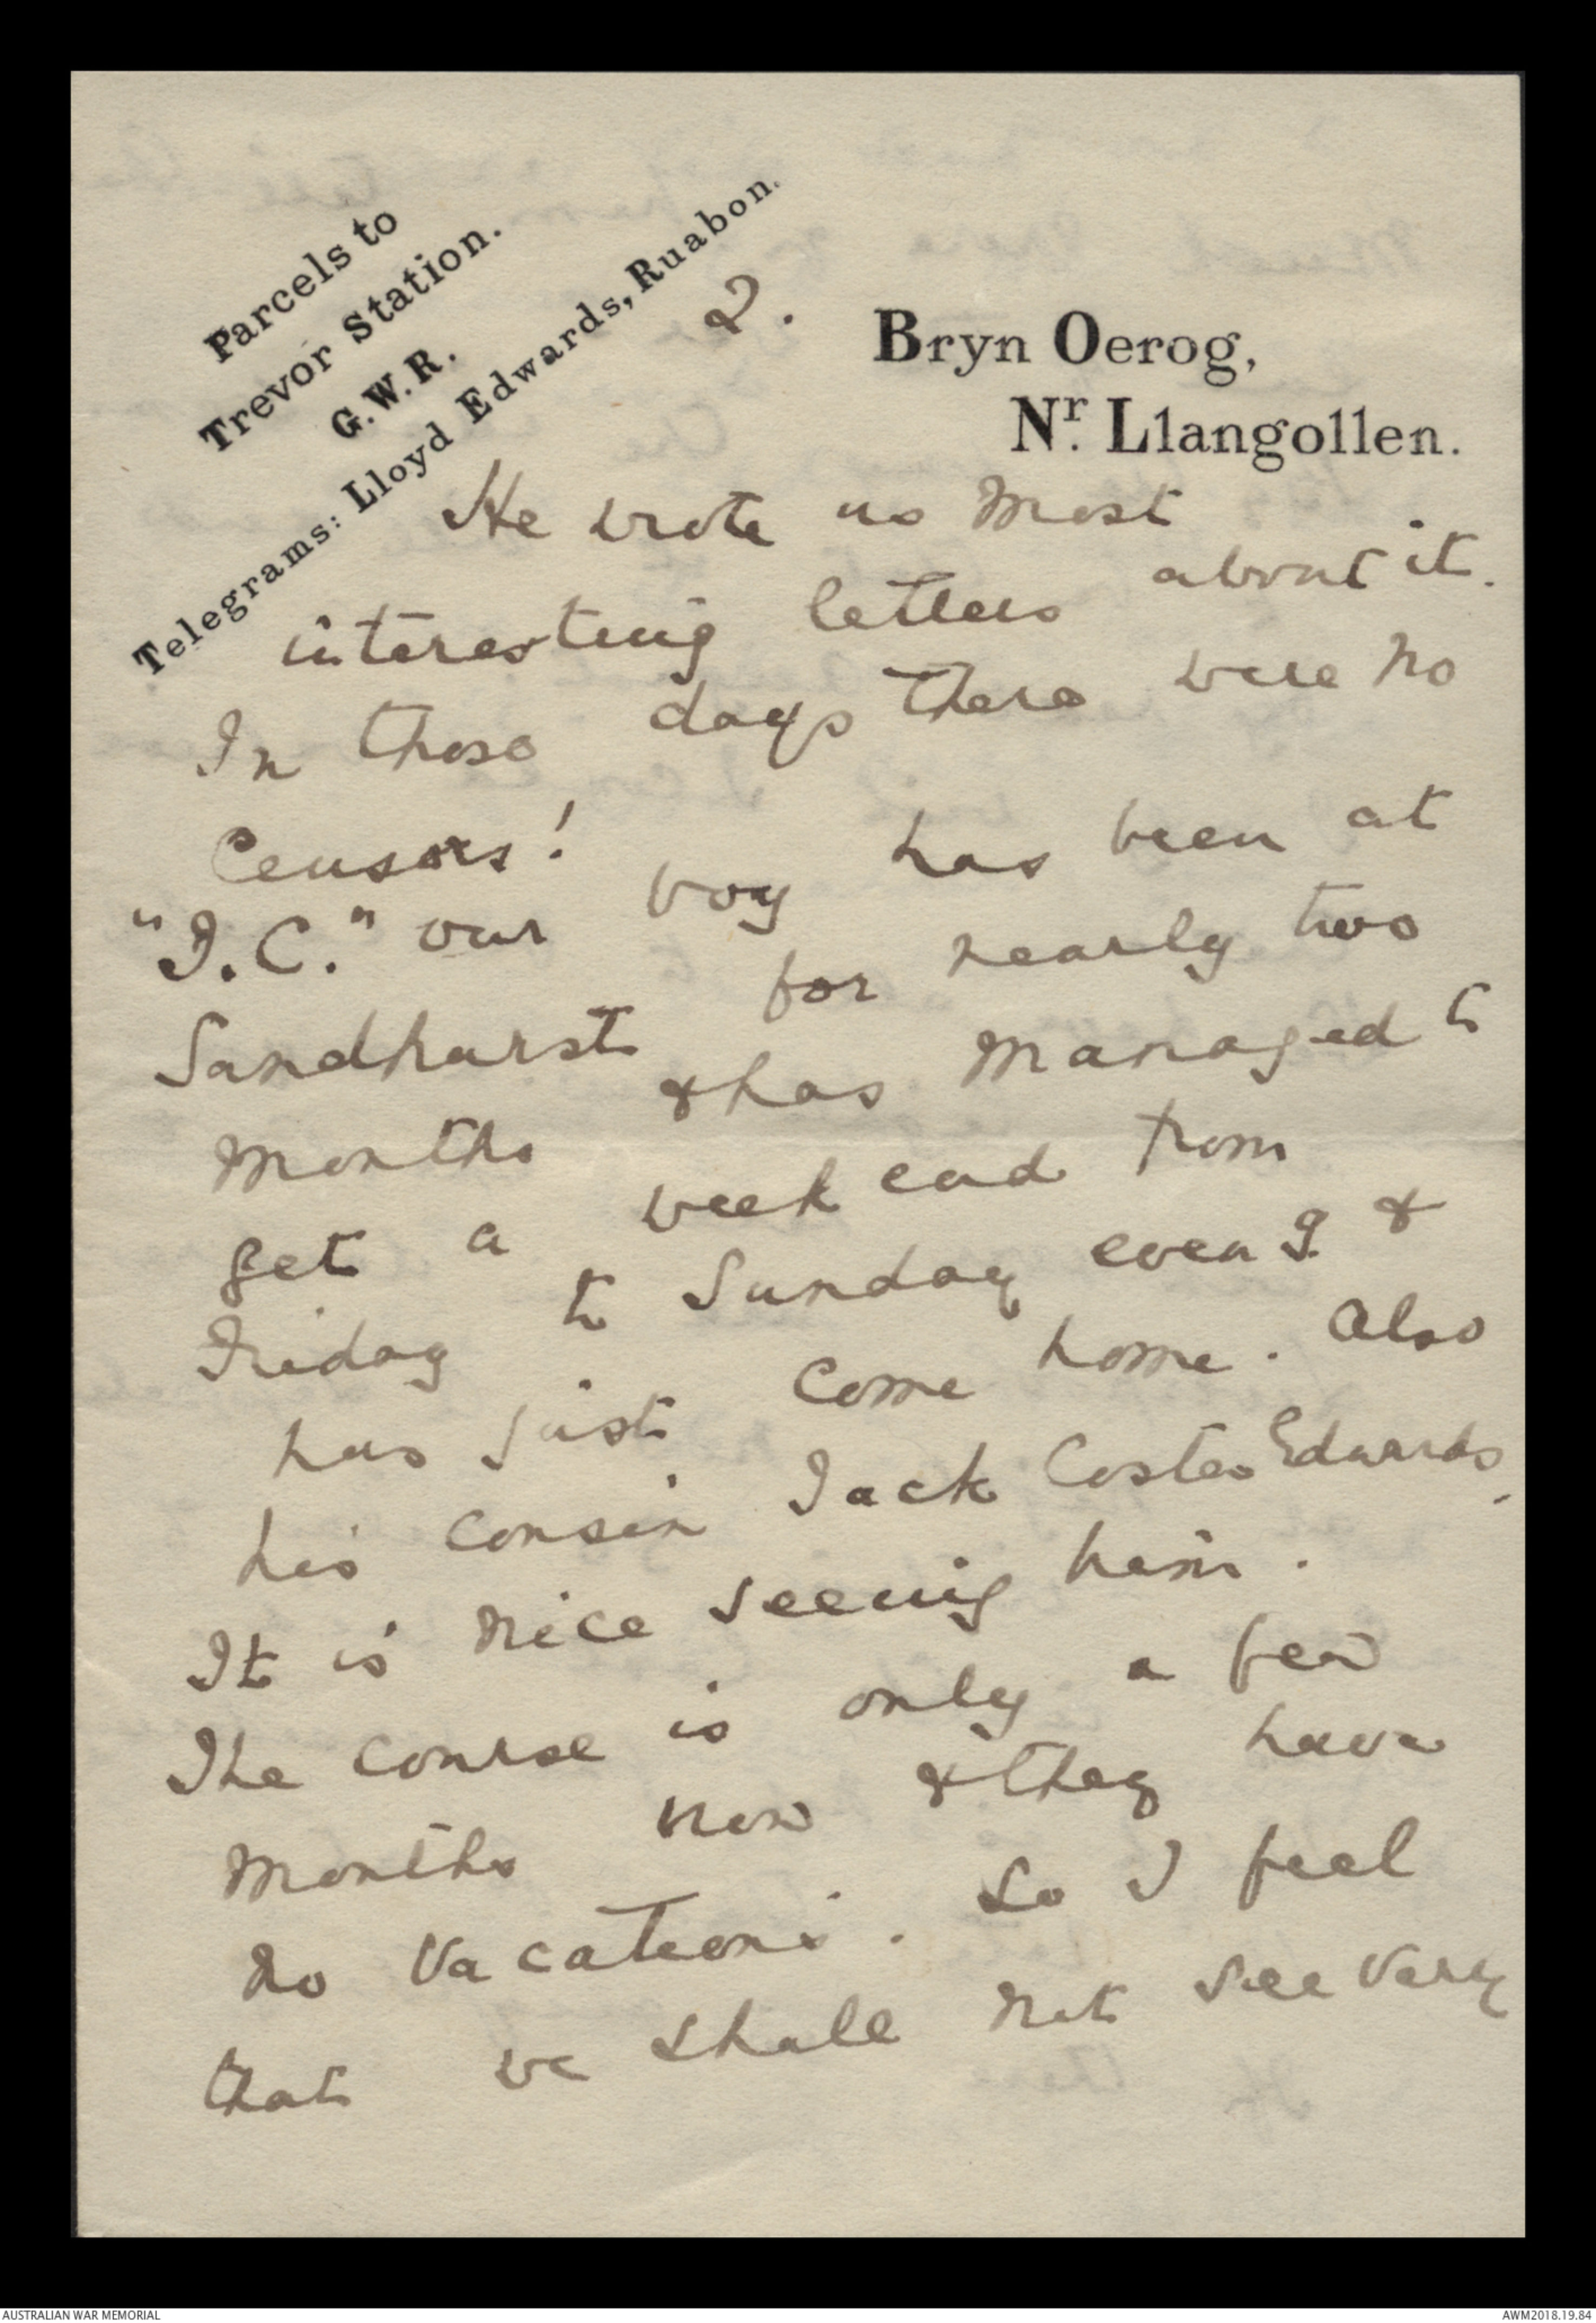 Parcels to
Trevor Station.
G.W.R.
Telegrams: Lloyd Edwards, Ruabon.
2.
Bryn Oerog,
Nr. Llangollen.
He wrote us most
interesting letters about it.
In those days there were no
Censors!
"J.C." our boy has been at
Sandhurst for nearly two
months & has managed to
get a week end from
Friday to Sunday eveng. &
has just come home. Also
his cousin Jack Coster Edwards.
It is nice seeing him.
The course is only a few
months now & they have
no vacations. So I feel
that we shall not see very
AUSTRALIAN WAR MEMORIAL
AWM2018.19.84